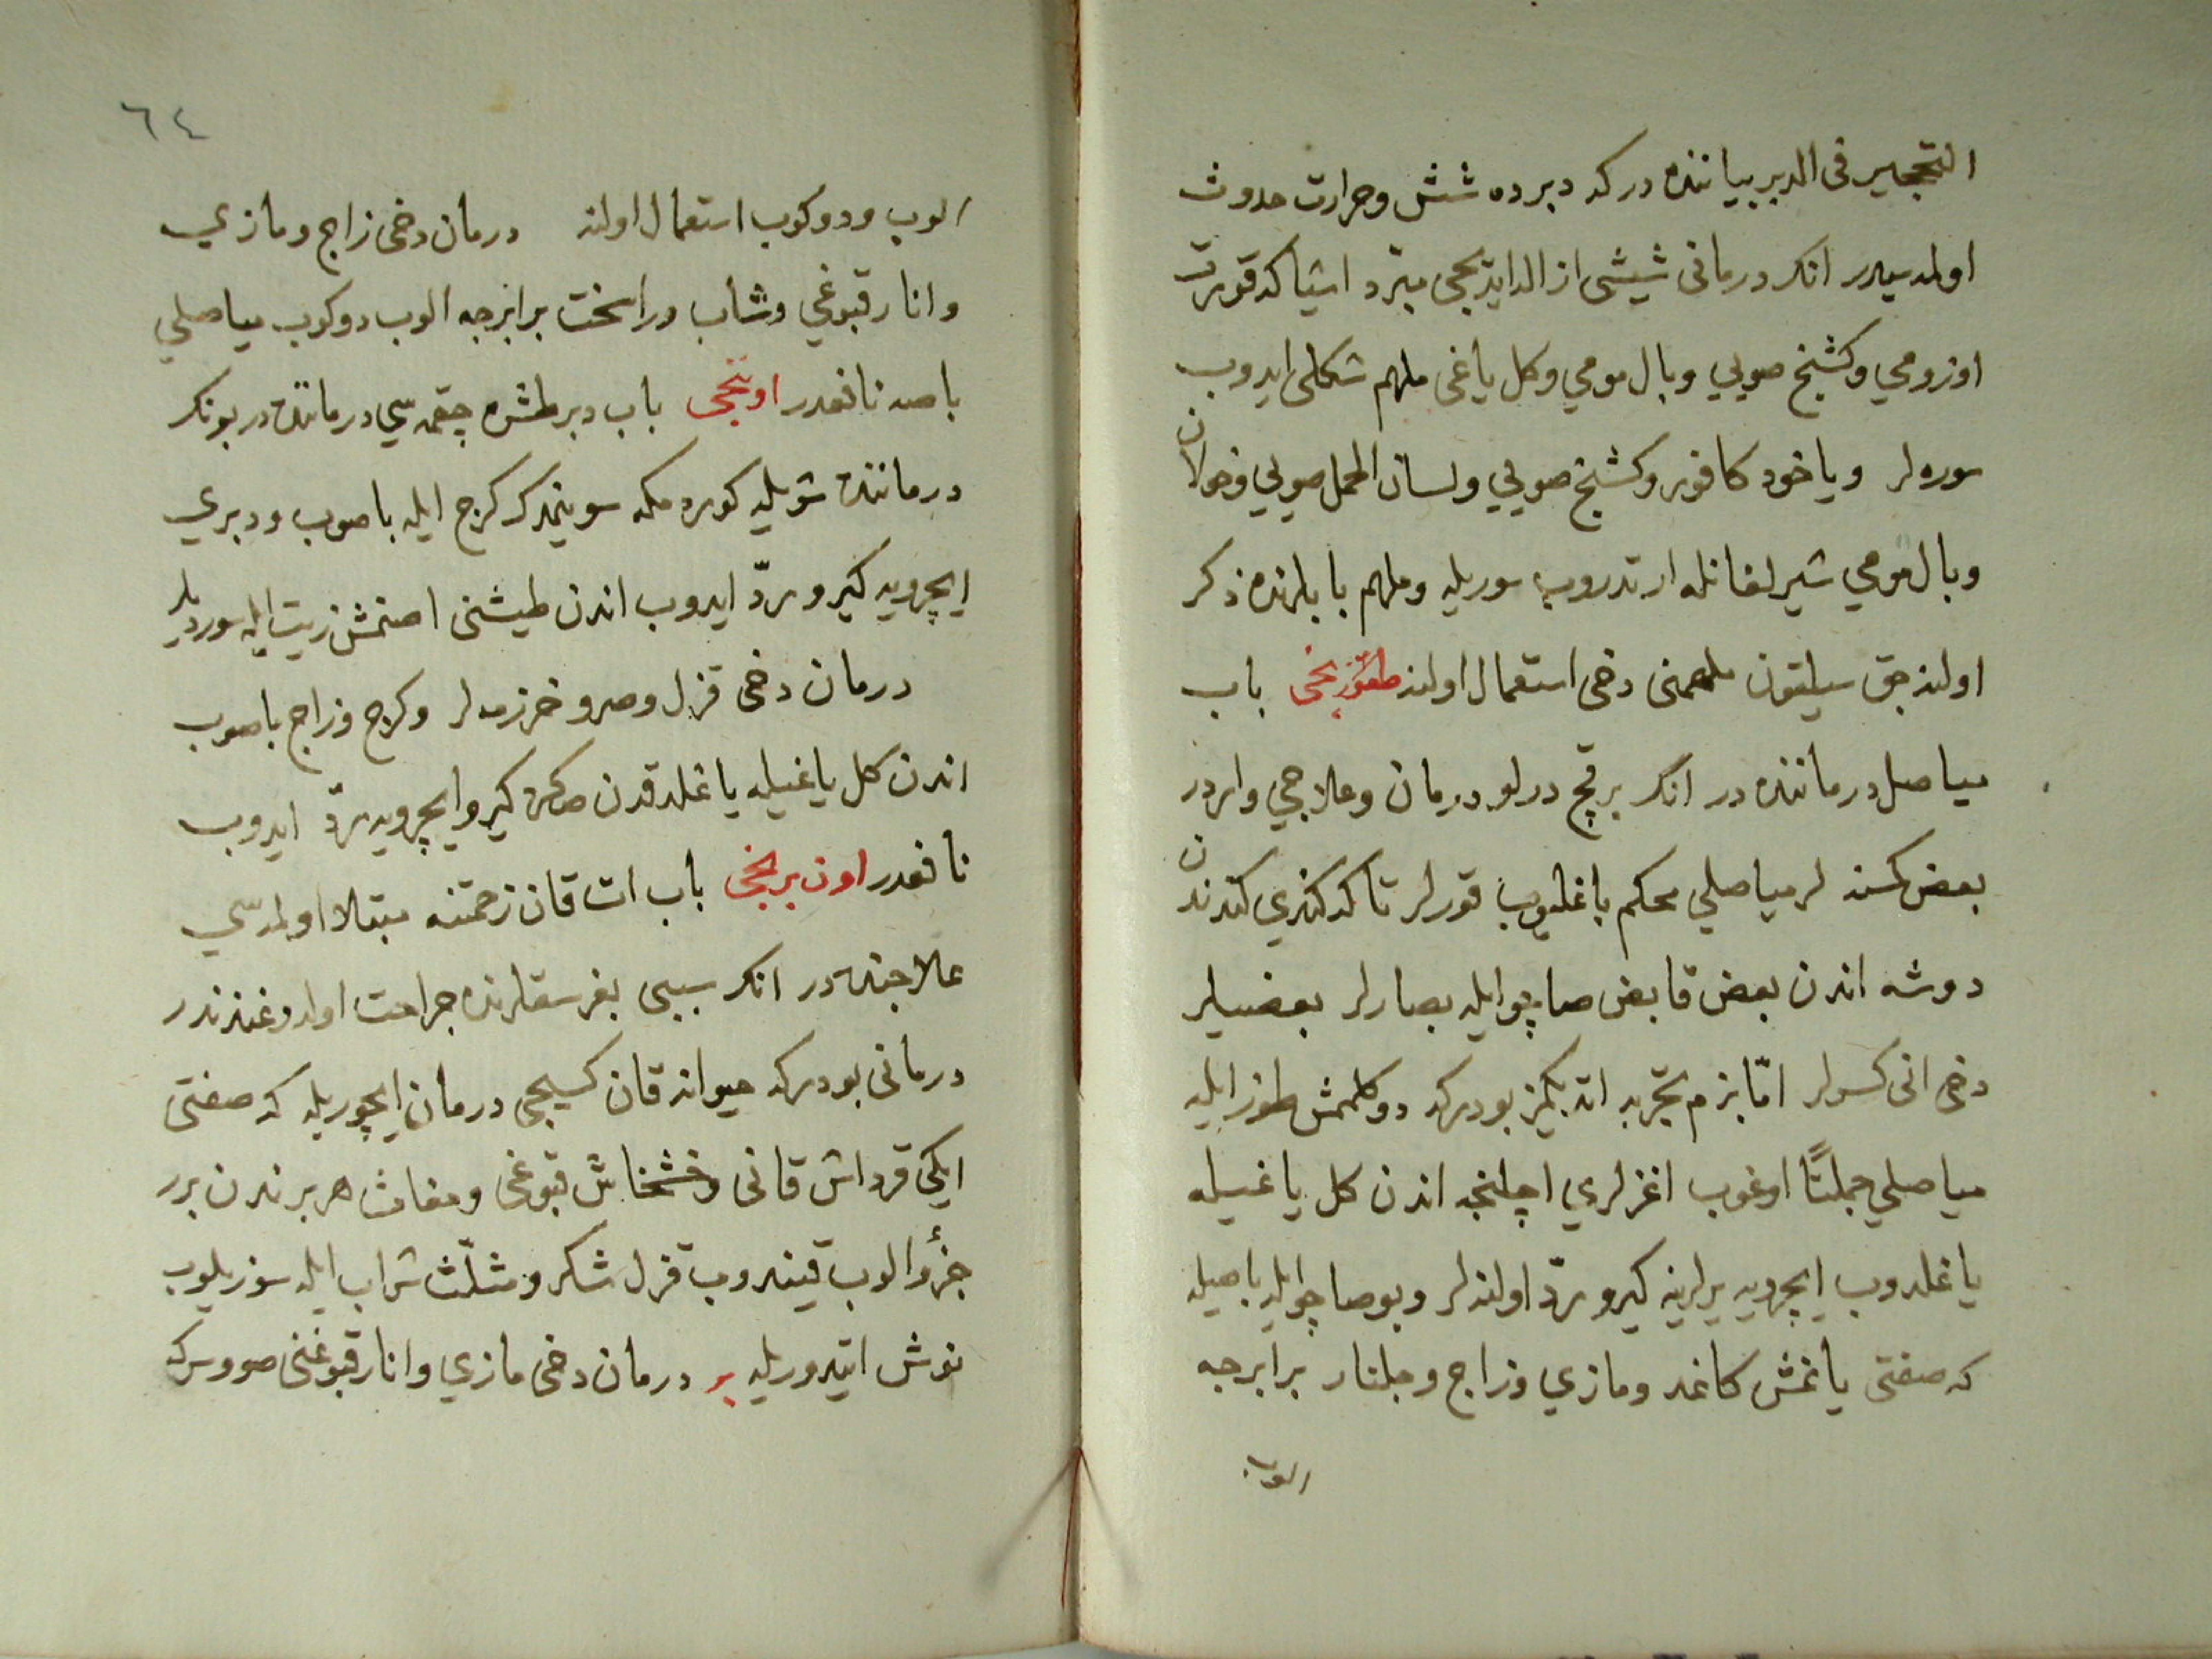 التحجير فى الدبر بياننده در كه دبرده شش وحرارت حدوث
اولمه سيدر انك درمانى شيشى ازالدايديجى مبرد اشيا كه قورت
اوزومى وكشنخ صويى وبال مومى وكل ياغى ملهم شكلى ايدوب
سوره لر وياخود كافور وكشنخ صويى ولسان الحمل صويى وخولان
وبال مومى شيرلغانله ارتدروب سوريله وملهم بابلرنده ذكر
اولنه جق سيلقون ملهمنى دخى استعمال اولنه طقوزنجى باب
مياصل درماننده در انك برقچ درلو درمان وعلاجى واردر
بعض كسنه لر مياصلى محكم باغليوب قورلر تا كه كندى كندندن
دوشه اندن بعض قابض صاچو ايله بصارلر بعضيلر
دخى انى كسرلر امّا بزم تجربه اتديكمز بودركه دوكلمش طوز ايله
مياصلى جملتًا اوغوب اغزلرى اچلنجه اندن كل ياغيله
ياغلدوب ايچرويه يرلرينه كيرو ردّ اولنه لر وبو صاچو ايله باصيله
كه صفتى يانمش كاغد ومازى وزاج وجلنار برابرجه
الوب
٦٤
الوب ودوكوب استعمال اولنه درمان دخى زاج ومازى
وانار قبوغى وشاب وراسخت برابرجه الوب دوكوب مياصلى
باصه نافعدر اوننجى باب دبر طشره چقمه سى درماننده در بونك
درماننده شويله كوره مكه سوينمدك كرج ايله باصوب ودبرى
ايچرويه كيرو ردّ ايدوب اندن طيشنى اصنمش زيت ايله سوره لر
درمان دخى قزل وصرو خرزمه لر وكرج وزاج باصوب
اندن كل ياغيله ياغلدقدن صكره كيرو ايچرويه ردّ ايدوب
نافعدر اون برنجى باب ات قان زحمتنه مبتلا اولمه سى
علاجنده در انك سببى بغرسقلرنده جراحت اولدوغندندر
درمانى بودركه حيوانه قان كسيجى درمان ايچوريله كه صفتى
ايكى قرداش قانى وخشخاش قبوغى ومغاث هر برندن برر
جزؤ الوب قيندوب قزل شكر ومثلّث شراب ايله سوزيلوب
نوش اتيدوريله درمان دخى مازى وانار قبوغنى صو وسركه